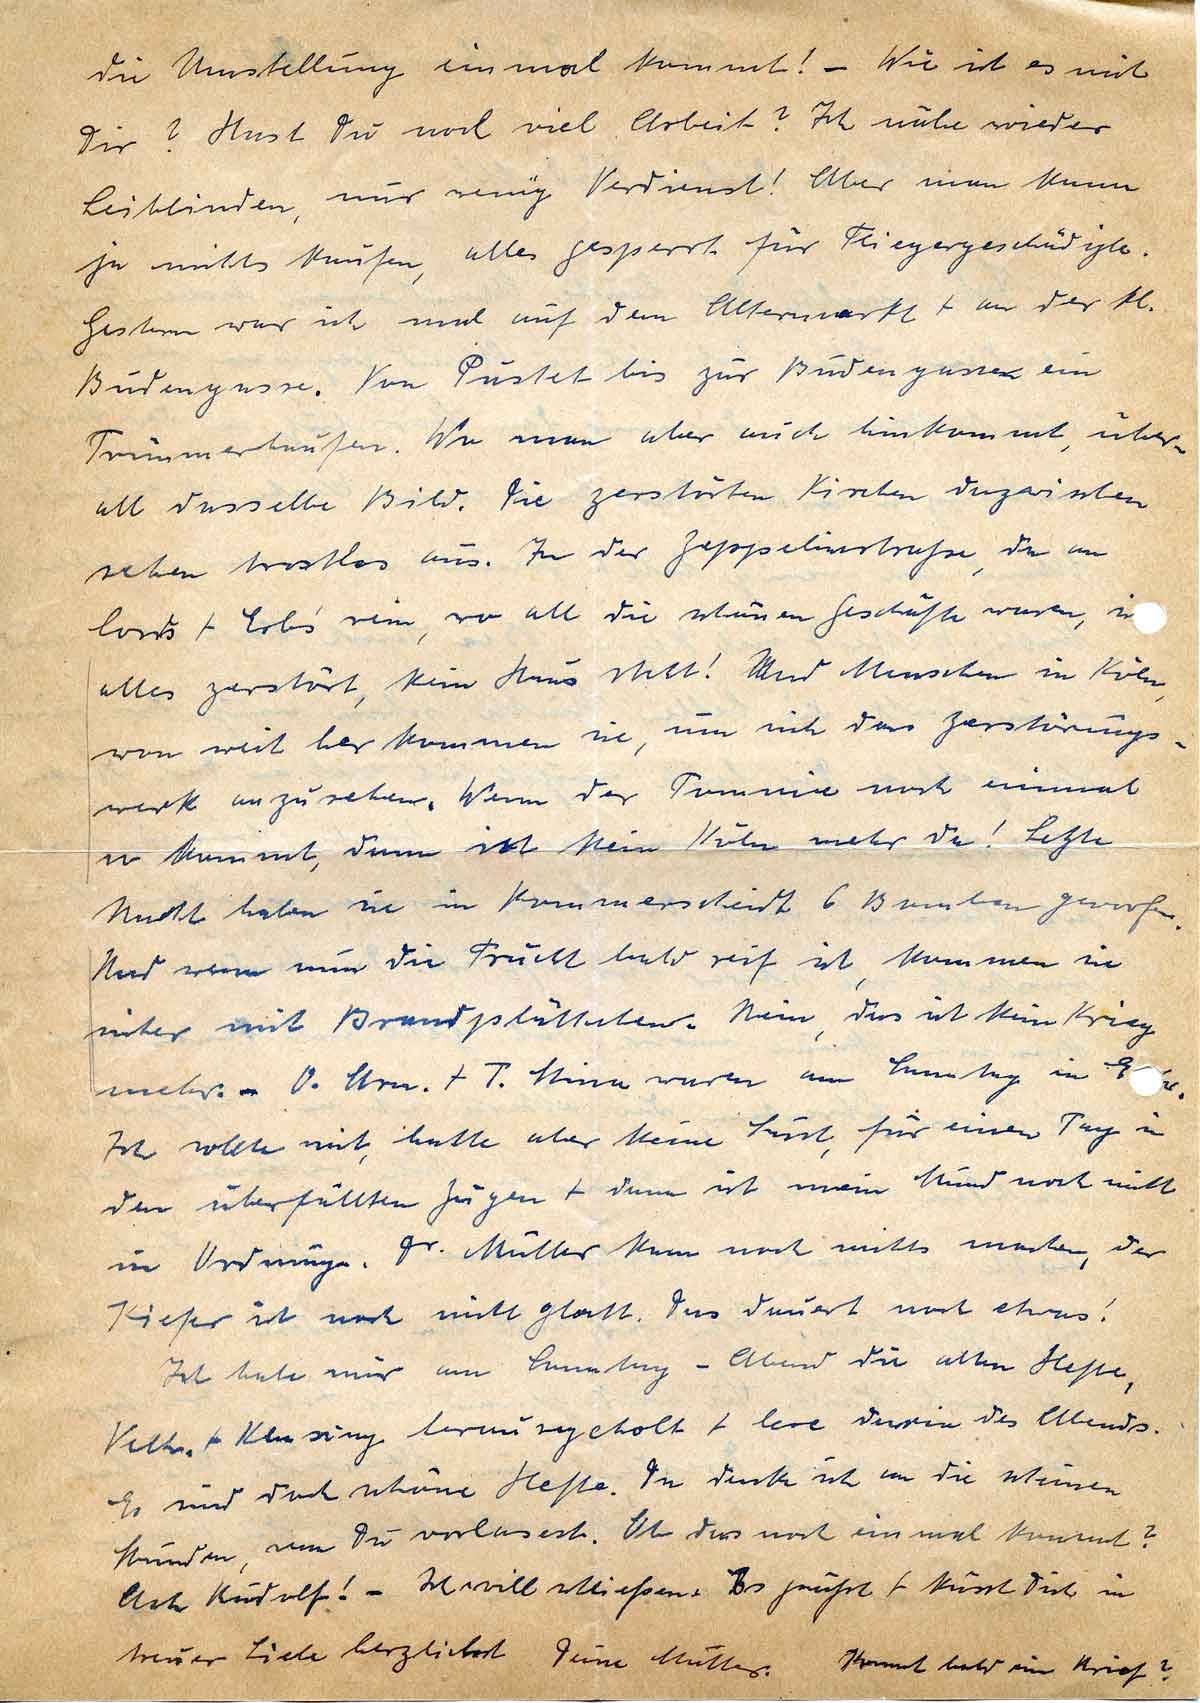 die Umstellung einmal kommt! – Wie ist es mit
Dir? Hast Du noch viel Arbeit? Ich nähe wieder
Leibbinden, nur wenig Verdienst! Aber man kann
ja nichts kaufen, alles gesperrt für Fliegergeschädigte.
Gestern war ich mal auf dem Altermarkt + an der kl.
Budengasse. Von Pustet bis zur Budengasse ein
Trümmerhaufen. Wo man aber auch hinkommt, über-
all dasselbe Bild. Die zerstörten Kirchen dazwischen
sehen trostlos aus. In der Zeppelinstraße, da an
+ vein, wo all die schönen Geschäfte waren, is
alles zerstört, kein Haus steht! Und Menschen in Köln,
von weit her kommen sie, um sich das Zerstörungs-
werk anzusehen. Wenn der Tommie noch einmal
so kommt, dann ist kein Köln mehr da! Letzte
Nacht haben sie in Kommerscheidt 6 Bomben geworfen.
Und wenn nun die Frucht bald reif ist, kommen sie
sicher mit Brandplättchen. Nein, das ist kein Krieg
mehr. – O. Arn. + T. Mina waren am Sonntag in
Ich wollte mit, hatte aber keine Lust, für einen Tag in
den überfüllten Zügen + dann ist mein Mund noch nicht
in Ordnung. Dr. Müller kann noch nichts machen, der
Kiefer ist noch nicht glatt. Das dauert noch etwas!
Ich habe mir am Sonntag-Abend die alten Hefte,
Velh. + Klasing herausgeholt + lese darin des Abends.
Es sind doch schöne Hefte. Da denke ich an die schönen
Stunden, wenn Du vorlasest. Ob das noch einmal kommt?
Ach Rudolf! – Ich will schließen. Es grüßt + küsst Dich in
treuer Liebe herzlichst Deine Mutter. Kommt bald ein Brief?